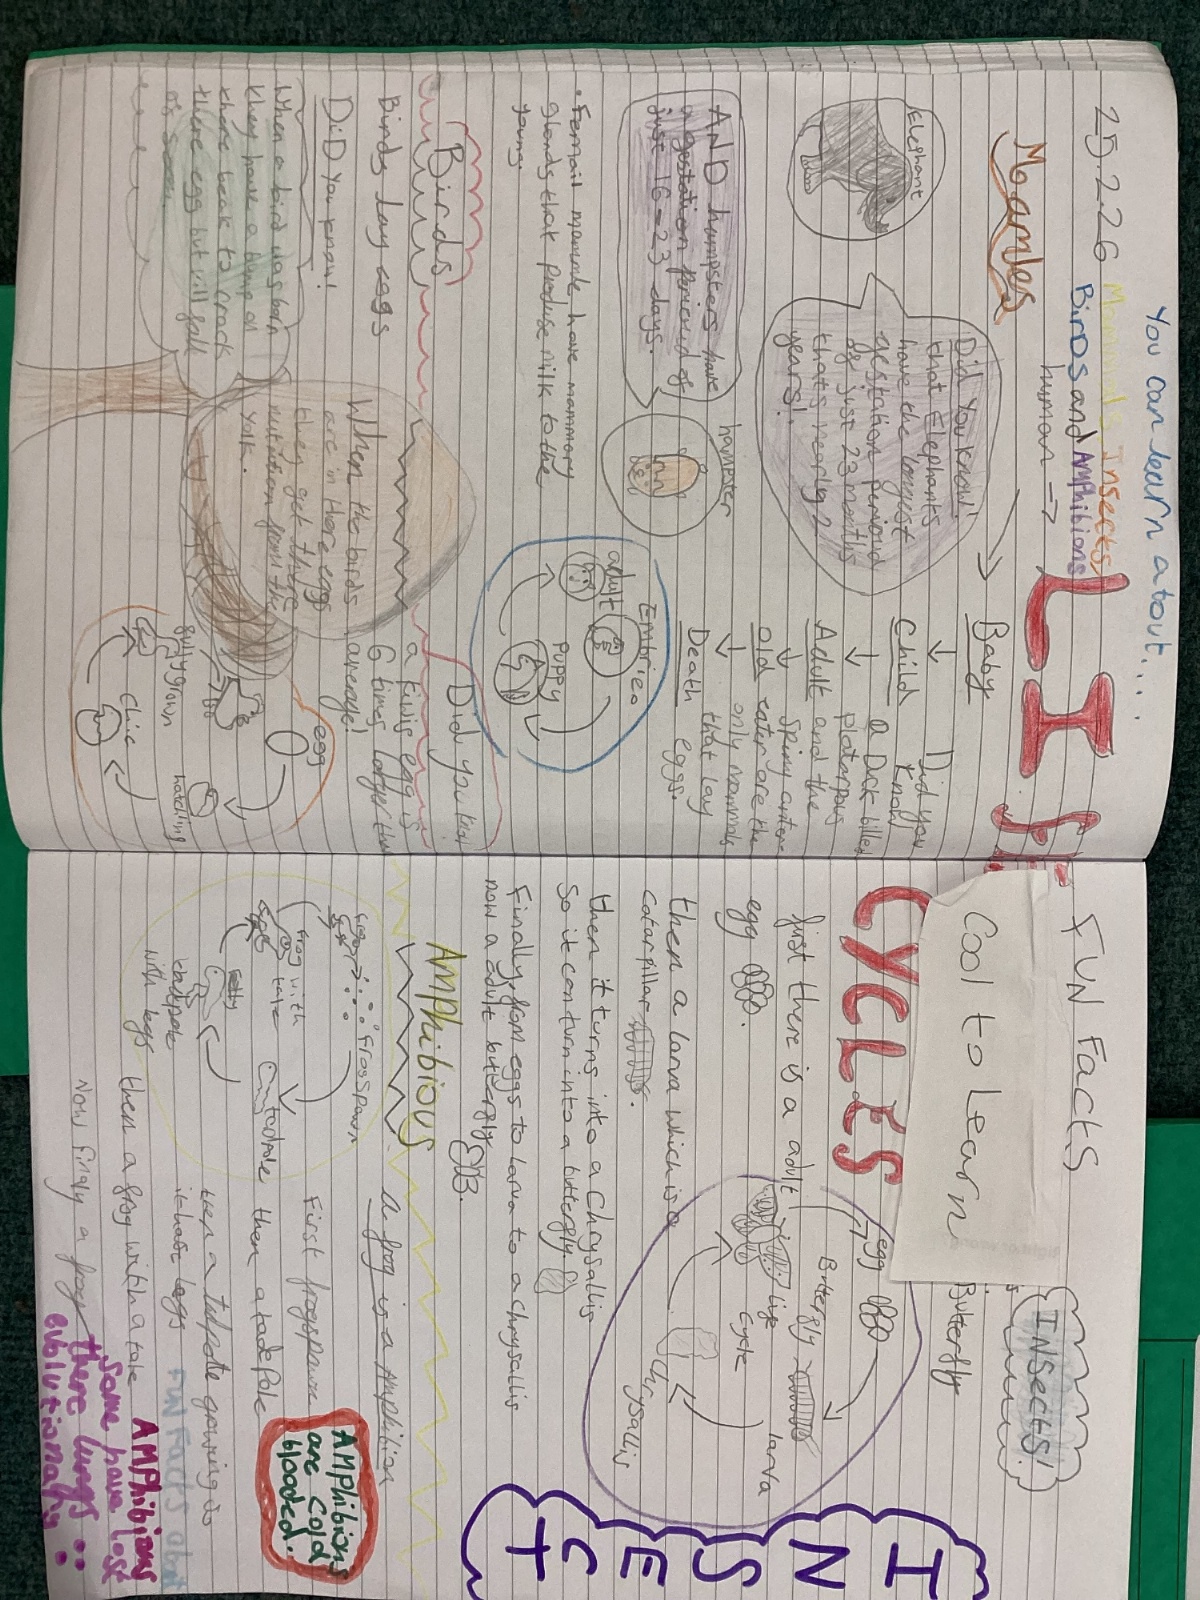 You can learn about...
25.2.26 Mammals, Insects,
Birds and AMPhibions
LIFE
CYCLES
Moamles
human ->
Baby
Child
Adult
old
Death
Elephant
Did You Know!
that Elephants
have the longest
gestation periowd
of just 23 months
thats nearly 2
years!
Did you
know
a Duck billed
platarpous
and the
Spiny anter
eater are the
only mammals
that lay
eggs.
AND humpsters have
a gestation periowd of
just 16-23 days.
hampster
• Femail mammle, have mammory
glands that produse milk to the
young.
Embrieo
adult
Puppy
Birds
Birds lay eggs
DiD You know!
When a bird was born
they have a bump on
there beak to crack
there egg but will fall
off soon.
When the birds
are in there eggs
they get there
nutrition from the
yolk.
Did you
a Kiwis egg is
6 times larger than
average!
egg
hatchling
Chic
fully grown
FUN FACTS
Cool to learn
INsects!
Butterfly
INSECT
Just there is a adult
egg
then a larva which is a
catarpillar
then it turns into a Chrysallis
So it can turn into a butterfly
Finally, from eggs to larva to a chrysallis
now a adult butterfly
egg
Butterfly
Life
Cycle
larva
Chrysallis
AMPhibious
a frog is a Amphibian
First frogspawn
then a tadePole
then a tadpole growing so
it haves leggs
then a frog with a tale
Now finaly a frog
Frogspawn
tadpole
with legs
frog with
tale
AMPhibions
are cold
blooded.
FUN FACTS about
AMPhibians
Some have lost
there lungs